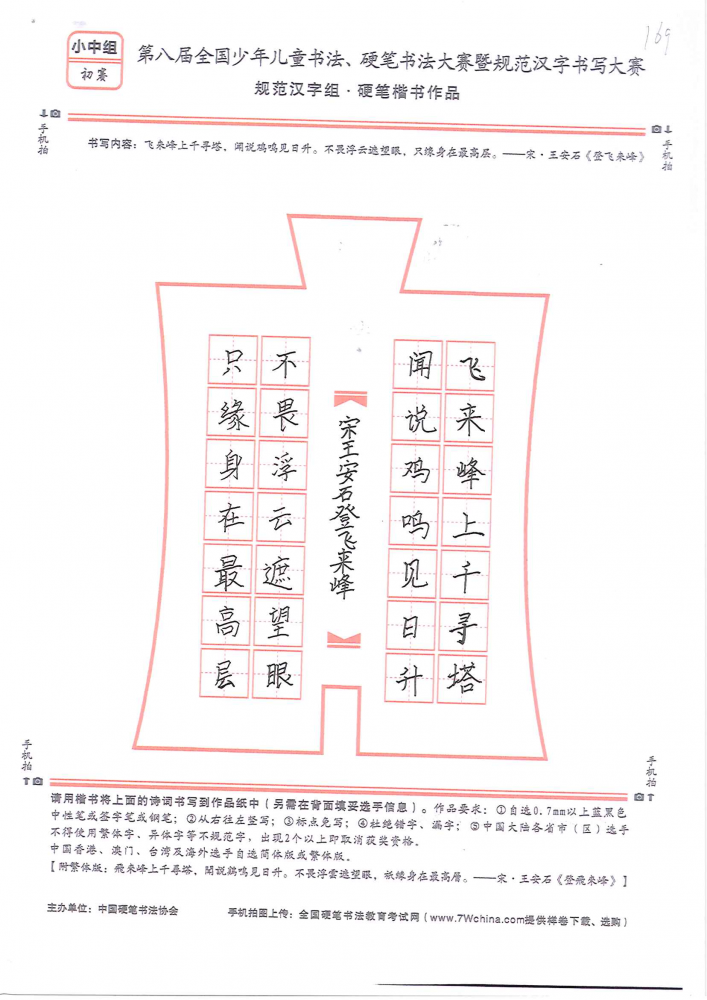 169
小中组
初赛
第八届全国少年儿童书法、硬笔书法大赛暨规范汉字书写大赛
规范汉字组·硬笔楷书作品
手机拍
手机拍
书写内容：飞来峰上千寻塔，闻说鸡鸣见日升。不畏浮云遮望眼，只缘身在最高层。——宋·王安石《登飞来峰》
飞来峰上千寻塔
闻说鸡鸣见日升
宋王安石登飞来峰
不畏浮云遮望眼
只缘身在最高层
手机拍
手机拍
请用楷书将上面的诗词书写到作品纸中（另需在背面填妥选手信息）。作品要求：①自选0.7mm以上蓝黑色
中性笔或签字笔或钢笔；②从右往左竖写；③标点免写；④杜绝错字、漏字；⑤中国大陆各省市（区）选手
不得使用繁体字、异体字等不规范字，出现2个以上即取消获奖资格。
中国香港、澳门、台湾及海外选手自选简体版或繁体版。
【附繁体版：飛來峰上千尋塔，聞說鷄鳴見日升。不畏浮雲遮望眼，祇緣身在最高層。——宋·王安石《登飛來峰》】
主办单位：中国硬笔书法协会
手机拍图上传：全国硬笔书法教育考试网（www.7Wchina.com提供样卷下载、选购）